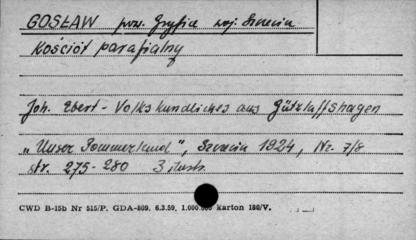 GOSŁAW pow. Gryfice woj. Szczecin
Kościół parafialny
Joh. Ebert - Volkskundliches aus Gützlaffshagen
„Unser Pommerland", Szczecin 1924, Nr. 7/8
str. 275-280 3 ilustr.
CWD B-15b Nr 515/P. GDA-809. 6.3.59, 1.000.000 karton 180/V.